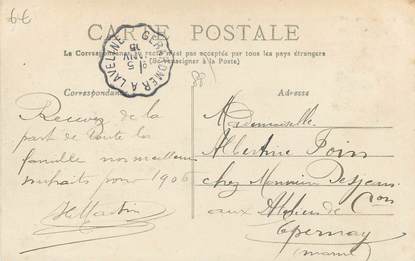 66
CARTE POSTALE
La Correspondance au recto n'est pas acceptée par tous les pays étrangers
(Se renseigner à la Poste)
GÉRARDMER A LAVELINE
Correspondance
Adresse
Recevez de la
part de toute la
famille nos meilleurs
souhaits pour 1906
Martin
Mademoiselle
Albertine
chez Monsieur Desjean
aux de Con
Epernay
(Marne)